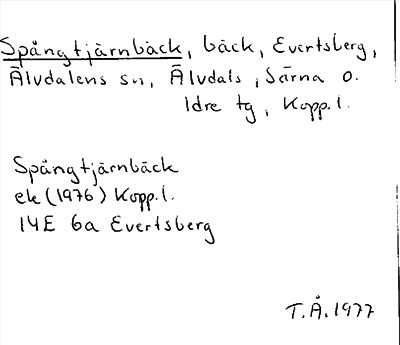 Spångtjärnbäck, bäck, Evertsberg,
Älvdalens sn, Älvdals, Särna o.
Idre tg, Kopp.l.
Spångtjärnbäck
ek (1976) Kopp.l.
14E 6a Evertsberg
T.Å. 1977